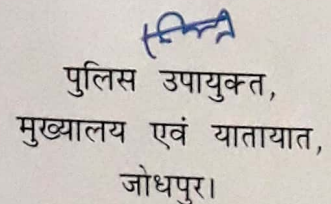 पुलिस उपायुक्त,
मुख्यालय एवं यातायात,
जोधपुर।